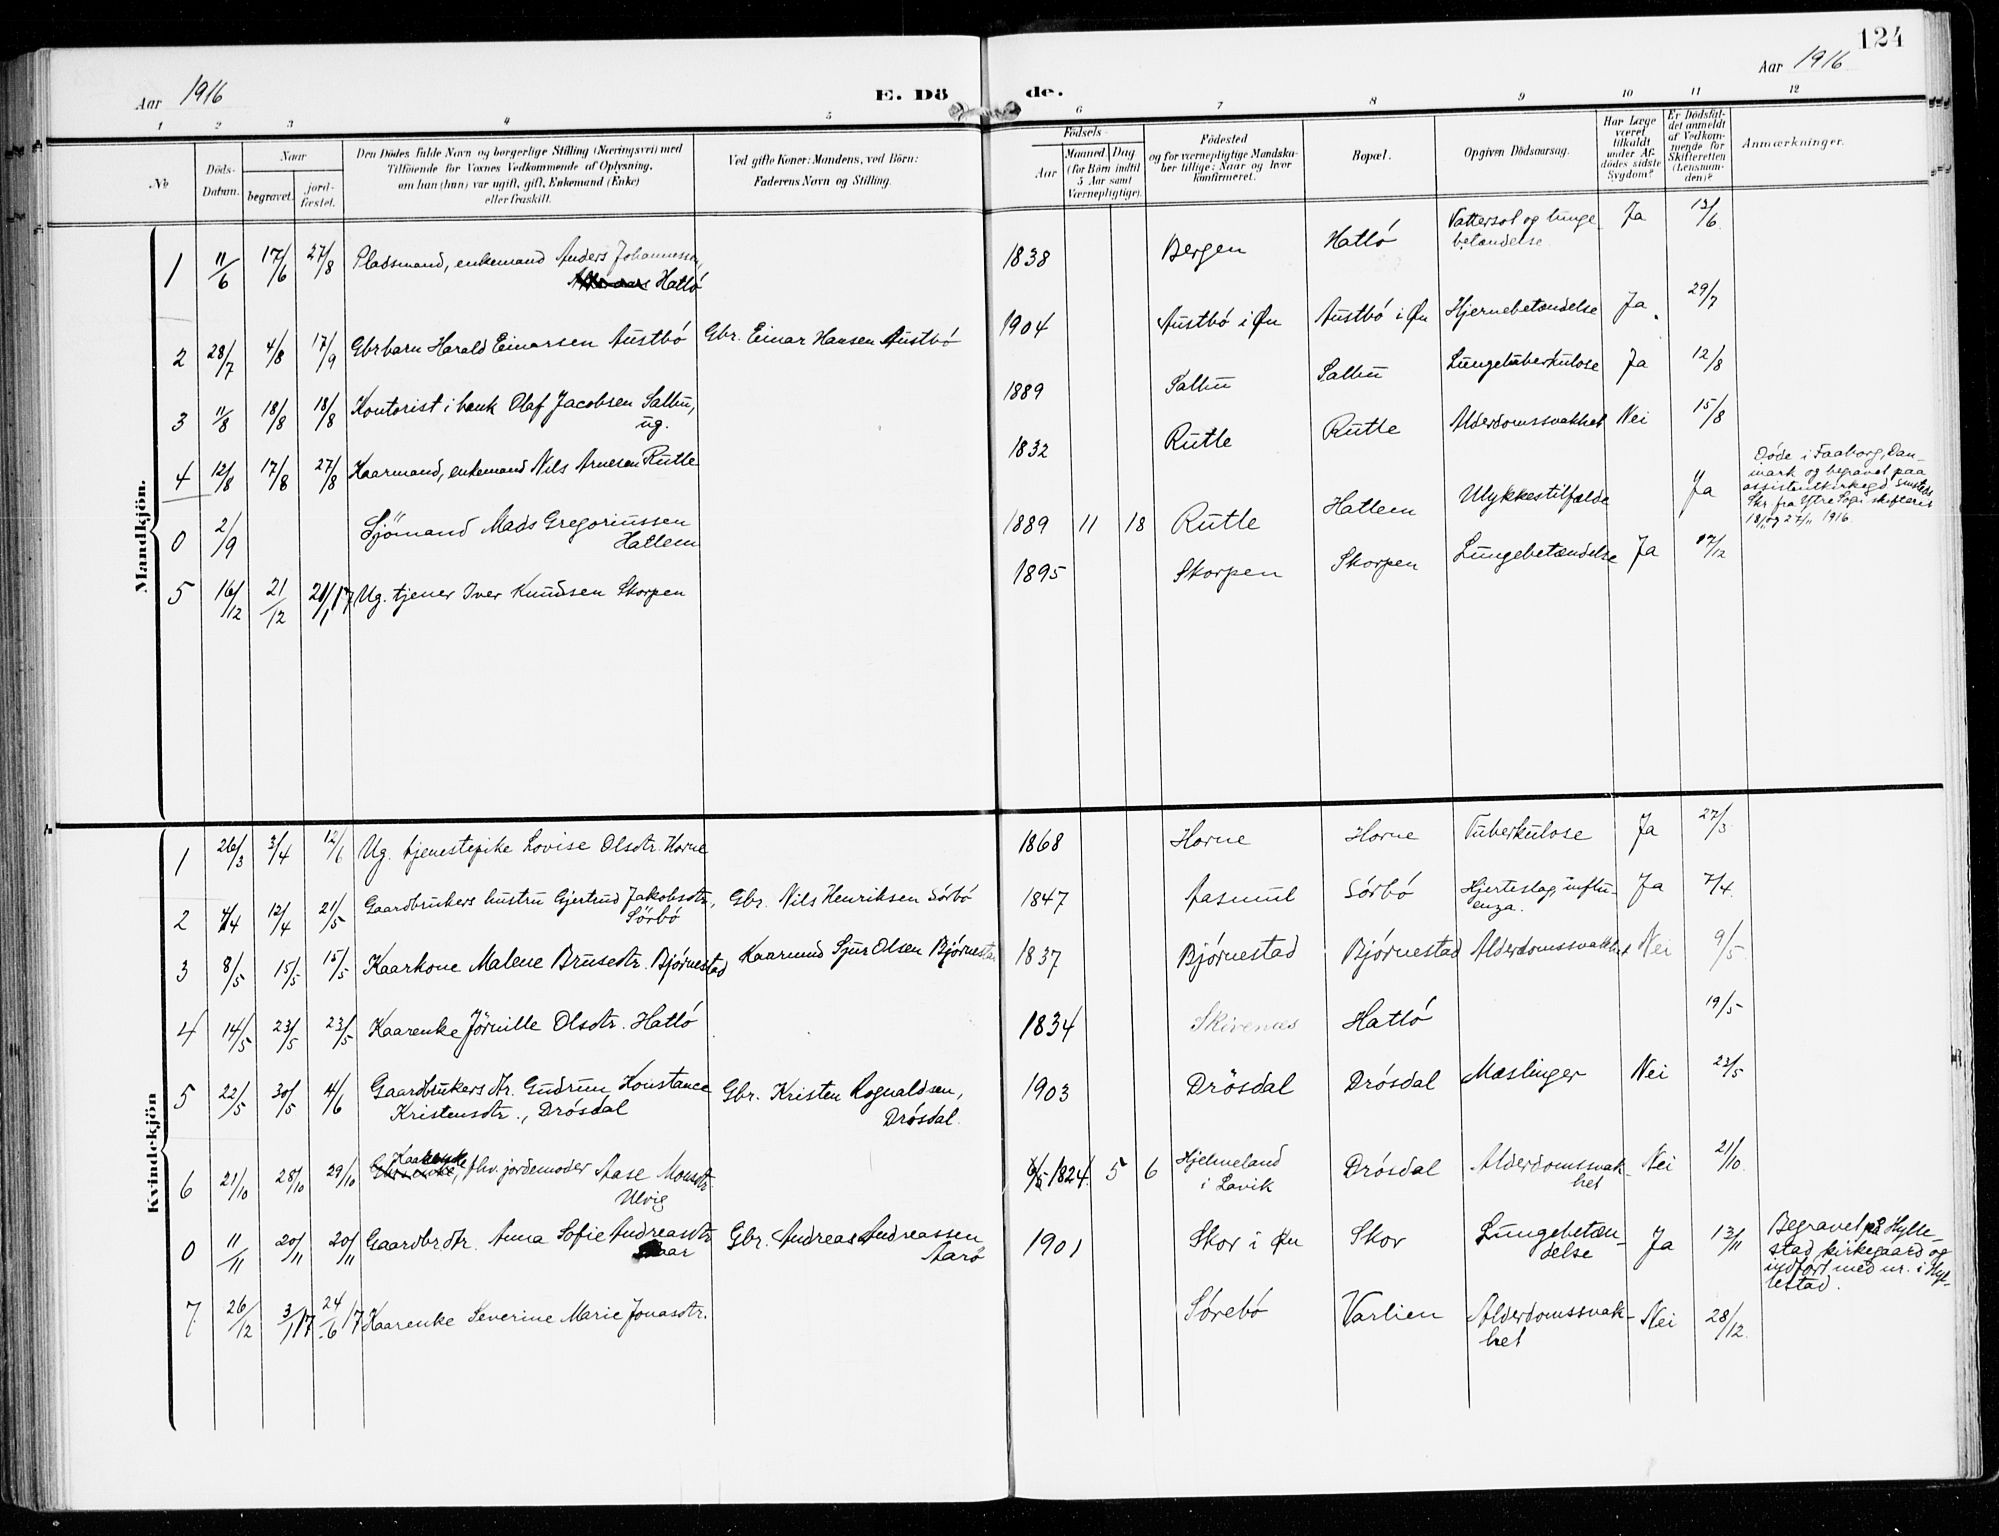 124
Aar 1916
E. Dö
de.
Aar 1916
1 2 3 4 5 6 7 8 9 10 11 12
No
Döds-
Datum.
Naar
begravet.
jord-
fæstet.
Den Dödes fulde Navn og borgerlige Stilling (Næringsvei) med
Tilföiende for Voxnes Vedkommende af Oplysning,
om han (hun) var ugift, gift, Enkemand (Enke)
eller fraskilt.
Ved gifte Koner: Mandens, ved Börn:
Faderens Navn og Stilling.
Födsels-
Aar
Maaned
Dag
(for Börn indtil
5 Aar samt
Værnepligtige).
Födested
og for værnepligtige Mandska-
ber tillige: Naar og hvor
konfirmeret.
Bopæl.
Opgiven Dödsaarsag.
Har Læge
været
tilkaldt
under Af-
dödes sidste
Sygdom?
Er Dödsfal-
det anmeldt
af Vedkom-
mende for
Skifteretten
(Lensman-
den)?
Anmærkninger.
Mandkjön.
1 11/6 17/6 27/8 Pladsmand, enkemand Anders Johannessen,
Hatló
1838 Bergen Hatló Vattersot og lunge
betændelse Ja 13/6
2 28/7 4/8 17/9 Gbrbarn Harald Einarsen Austbó Gbr. Einar Hansen Austbó
1904 Austbó i Øn Austbó i Øn Hjernebetændelse Ja 29/7
3 11/8 18/8 18/8 Kontorist i bank Olaf Jacobsen Salbu,
ug.
1889 Salbu Salbu Lungetuberkulose Ja 12/8
4 12/8 17/8 27/8 Kaarmand, enkemand Nils Arnesen Rutle
1832 Rutle Rutle Alderdomssvakhet Nei 15/8
0 2/9 Sjömand Mads Gregoriussen
Hatlem
1889 11 18 Rutle Hatlem Ulykkestilfælde Ja
Döde i Faaborg, Dan-
mark og begravet paa
assistentkirkegd smsteds
Skr. fra Ytre Sogn skifteret
18/11 og 27/11 1916.
5 16/12 21/12 21/1 17 Ug. tjener Iver Knudsen Skorpen
1895 Skorpen Skorpen Lungebetændelse Ja 17/12
Kvindekjön
1 26/3 3/4 12/6 Ug. tjenestepike Lovise Olsdtr. Horne
1868 Horne Horne Tuberkulose Ja 27/3
2 4/4 12/4 21/5 Gaardbrukers hustru Gjertrud Jakobsdtr,
Sörbó
Gbr. Nils Henriksen Sórbó
1847 Aasmul Sórbó Hjerteslag, influ-
enza. Ja 7/4.
3 8/5 15/5 15/5 Kaarkone Malene Brusedtr. Bjórnestad Kaarmnd Sjur Olsen Bjórnestad
1837 Bjórnestad Bjórnestad Alderdomssvakhet Nei 9/5
4 14/5 23/5 23/5 Kaarenke Jörnille Olsdtr. Hatló
1834 Skivenes Hatló 19/5
5 22/5 30/5 4/6 Gaardbrukersdtr. Gudrun Konstance
Kristensdtr., Drósdal
Gbr. Kristen Rognaldsen,
Drósdal.
1903 Drösdal Drósdal Mæslinger Nei 23/5
6 21/10 28/10 29/10 Kaarenke, fhv. jordemoder Aase Monsdtr.
Ulvig
6/5 1824. 5 6 Hjelmeland
i Lavik
Drósdal Alderdomssvak-
het Nei 21/10.
0 11/11 20/11 20/11 Gaardbrdtr. Anna Sofie Andreasdtr
Gbr. Andreas Andreassen
Aarö
1901 Skor i Øn Skor Lungebetæn-
delse Ja 13/11
Begravet på Hylle-
stad kirkegaard og
indfórt med nr. i Hyl-
lestad.
7 26/12 3/1 17 24/6 17 Kaarenke Severine Marie Jonasdtr.
Sórebó Varlien Alderdomssvak-
het Nei 28/12.